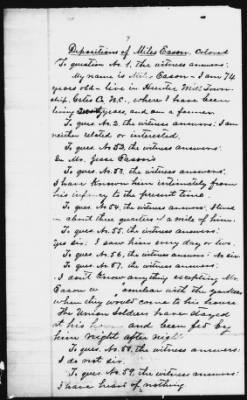 Depositions of Miles Eason, Colored
To question No. 1, the witness answers:
My name is Miles Eason - I am 74
years old - live in Hunter Mill Town-
ship. Gates Co N.C., where I have been
living years, and am a farmer.
To ques. No. 2. the witness answers: I am
neither related or interested.
To ques. No. 52. the witness answers:
In Mr. Jesse Eason's
To ques. No. 53. the witness answers:
I have known him intimately from
his infancy to the present time.
To ques. No. 54. the witness answers: I lived
in about three quarters of a mile of him.
To ques. No. 55. the witness answers:
Yes sir: I saw him every day or two.
To ques. No. 56, the witness answers: No sir
To ques. No. 57. the witness answers:
I don't know anything excepting Mr.
Eason familiar with the yankees
when they would come to his house
The Union Soldiers have stayed
at his house and been fed by
him night after night.
To ques. No. 58, the witness answers:
I do not sir.
To ques. No. 59, the witness answers:
I have heard of nothing